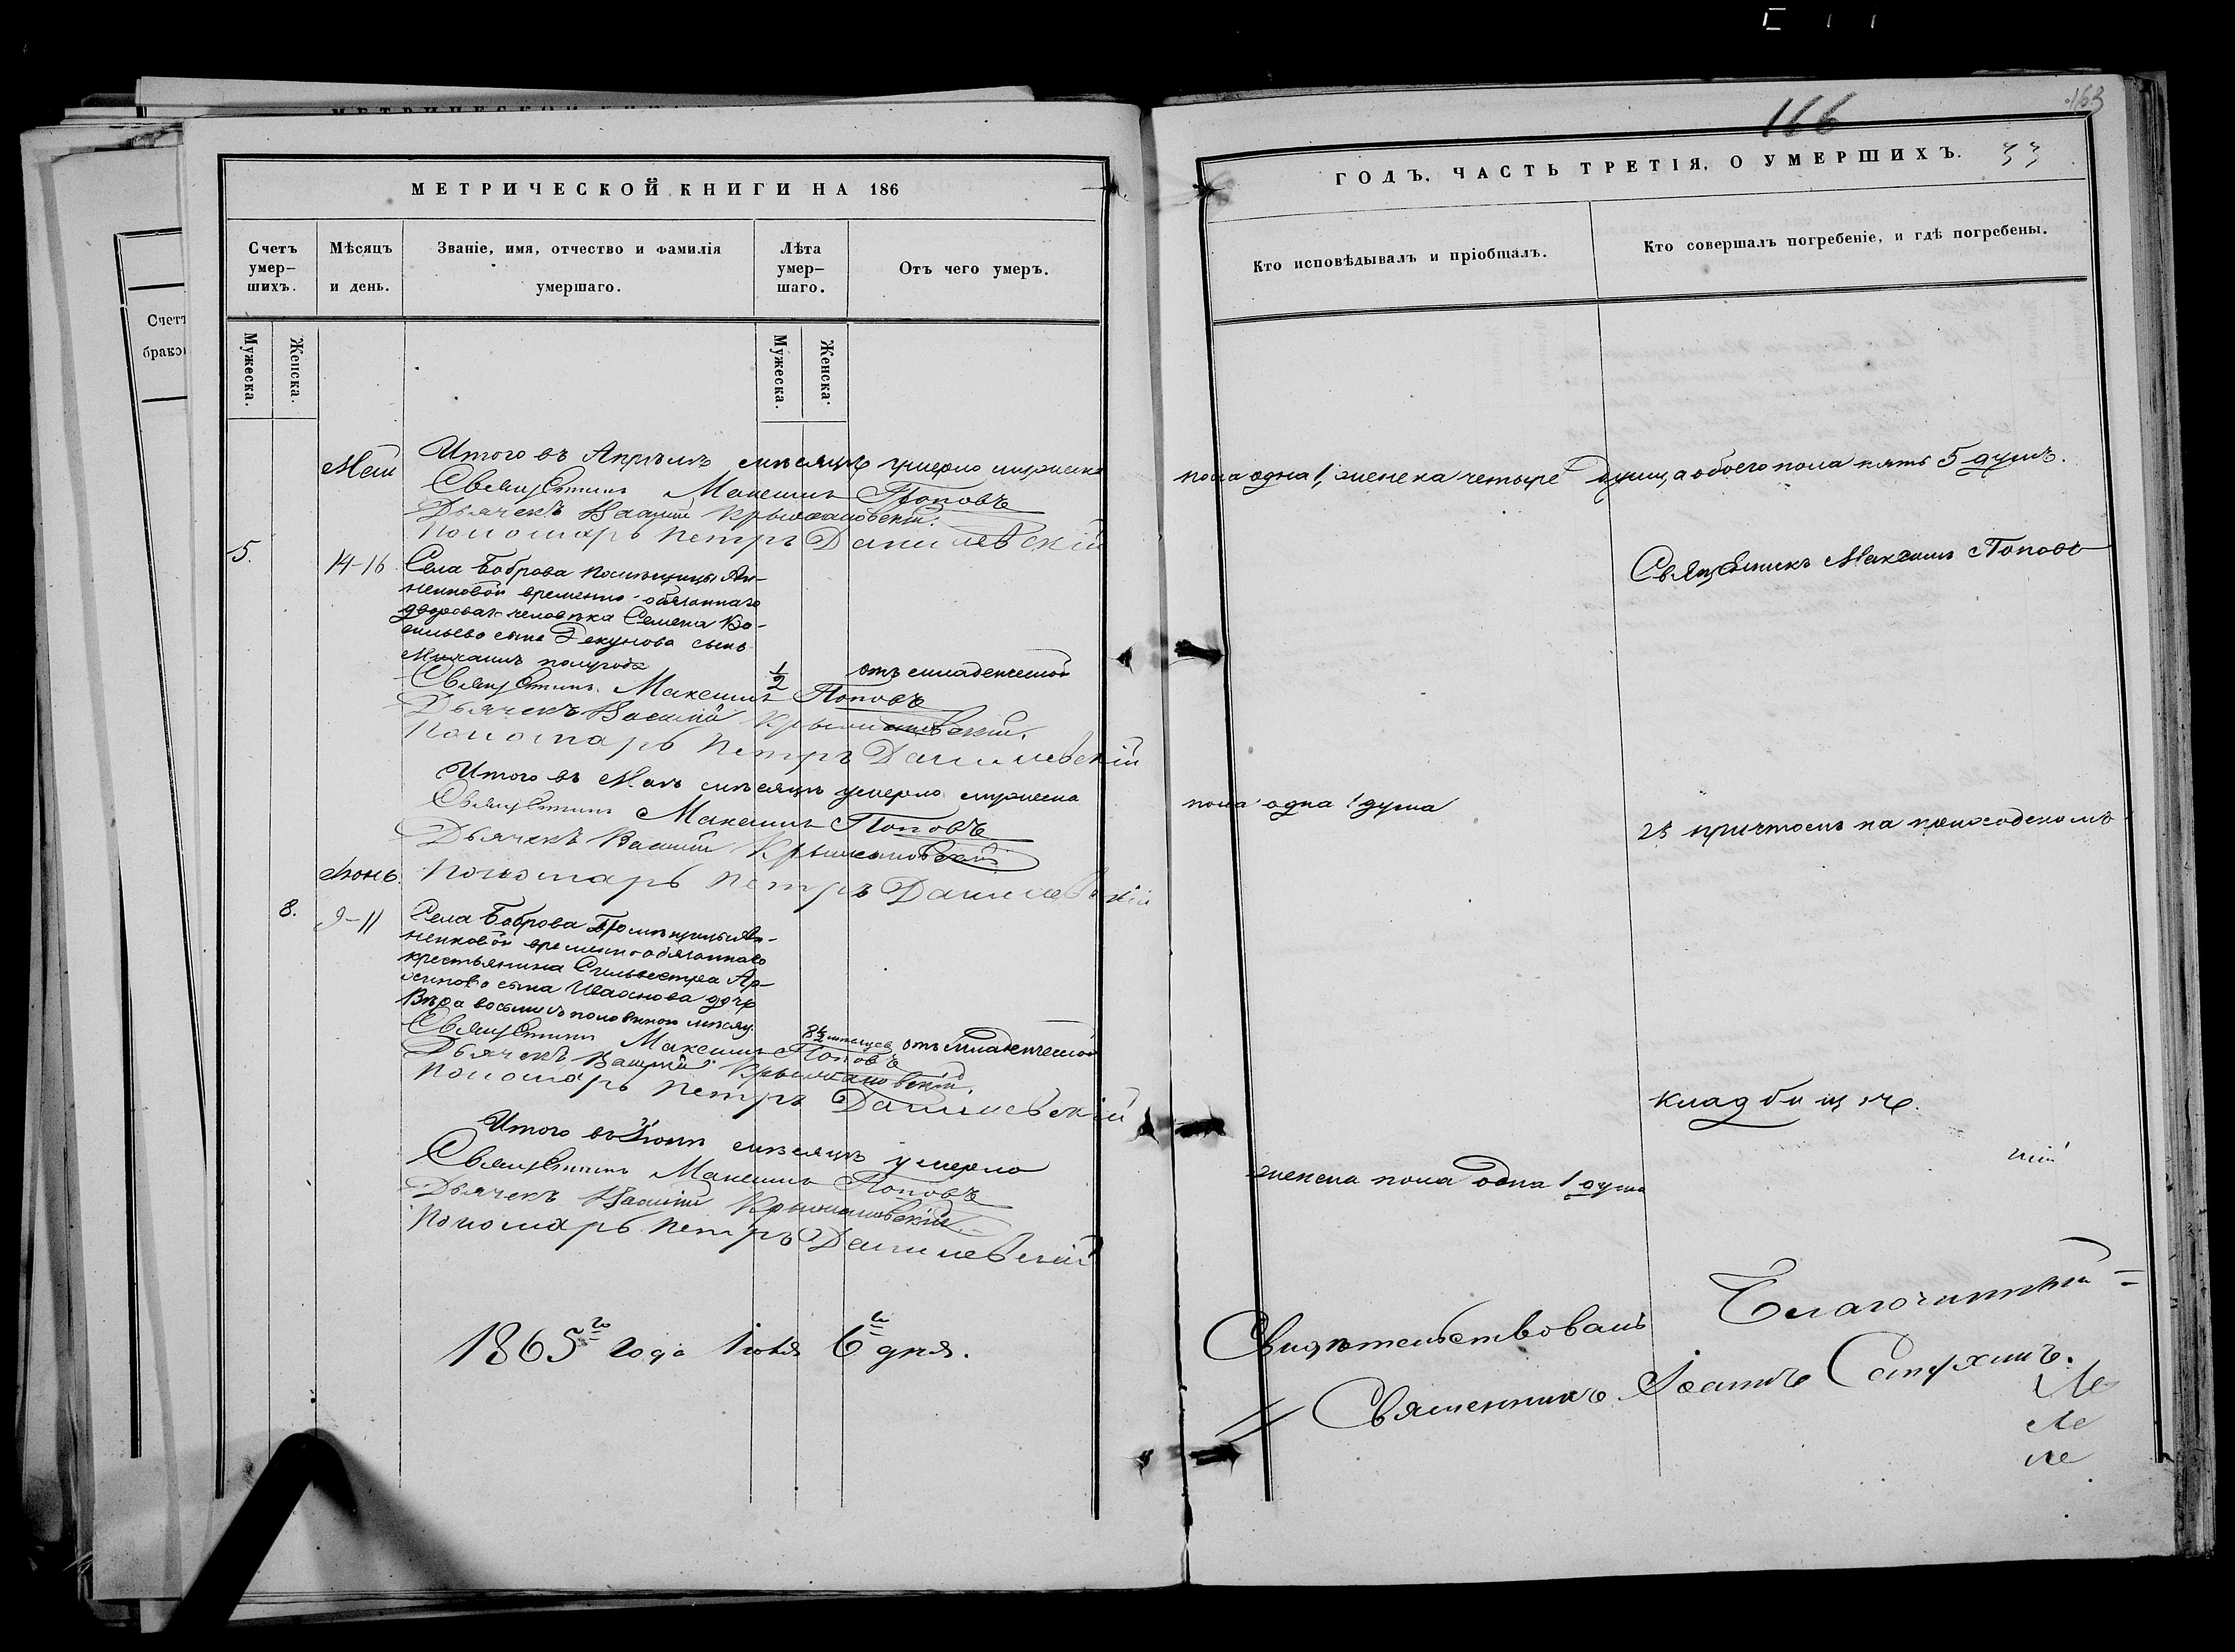 166
163
МЕТРИЧЕСКОЙ КНИГИ НА 186
Счетъ умер-шихъ.
Мѣсяцъ и день.
Званіе, имя, отчество и фамилія умершаго.
Лѣта умер-шаго.
Отъ чего умеръ.
Мужеска.
Женска.
Мужеска.
Женска.
Май
Итого въ Апрѣлѣ мѣсяцѣ умерло мужеска
Священникъ Максимъ Поповъ
Дьячекъ Василій Крыжановскій.
Пономарь Петръ Данилевскій
5.
14-16
Села Боброва помѣщицы Ан-
ненковой временно-обязаннаго
дворов. человѣка Семена Ва-
сильева сына Декунова сынъ
Михаилъ полугода
1/2
отъ младенческой
Священникъ Максимъ Поповъ
Дьячекъ Василій Крыжановскій.
Пономарь Петръ Данилевскій
Итого въ Маѣ мѣсяцѣ умерло мужеска
Священникъ Максимъ Поповъ
Дьячекъ Василій Крыжановскій
Іюнь.
Пономарь Петръ Данилевскій
8.
9-11
Села Боброва Помѣщицы Ан-
ненковой временно-обязаннаго
крестьянина Сильвестра
сына дочь
Вѣра восьми съ половиною мѣсяц.
8 1/2 мѣсяцев отъ младенческой
Священникъ Максимъ Поповъ
Дьячекъ Василій Крыжановскій
Пономарь Петръ Данилевскій
Итого въ Іюнѣ мѣсяцѣ умерло
Священникъ Максимъ Поповъ
Дьячекъ Василій Крыжановскій
Пономарь Петръ Данилевскій
1865го года Іюля 6го дня.
ГОДЪ, ЧАСТЬ ТРЕТІЯ, О УМЕРШИХЪ.
33
Кто исповѣдывалъ и пріобщалъ.
Кто совершалъ погребеніе, и гдѣ погребены.
пола одна 1, женска четыре души, а обоего пола пять 5 душъ.
Священникъ Максимъ Поповъ
пола одна 1 душа
съ причтомъ на приходскомъ
кладбищѣ.
женска пола одна 1 душа
Свидѣтельствовалъ Благочинный =
Священникъ Іоаннъ